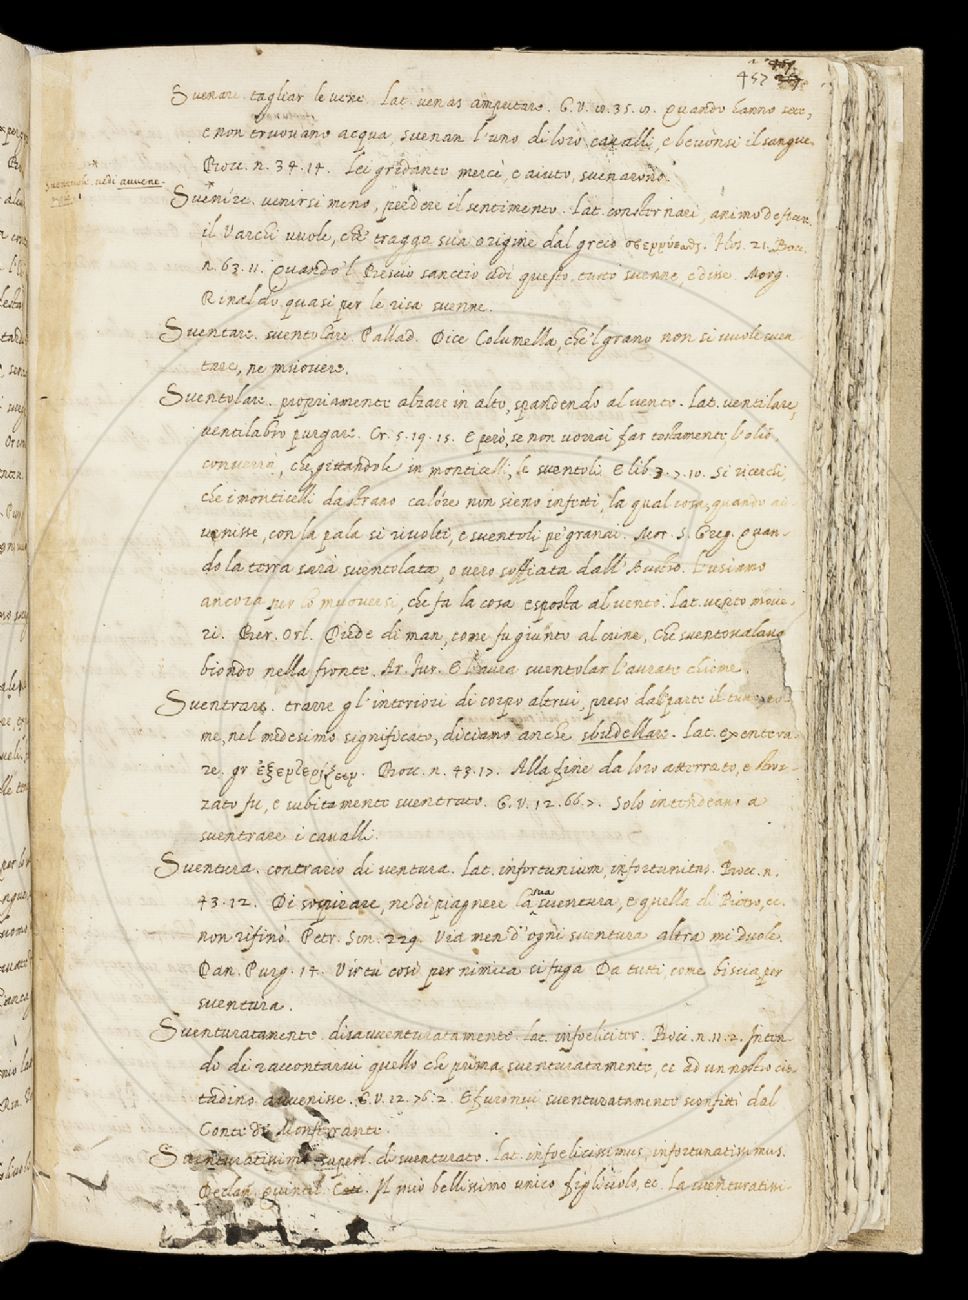 457
Svenare. tagliar le vene. Lat. venas amputare. G.V. 10. 35. Quando hanno sete,
e non truovano acqua, svenan l'uno di loro cavalli, e bevonsi il sangue.
Bocc. n. 34. 14. Lei gridante mercè, e aiuto, svenarono.
vedi avvene.
Svenire. venirsi meno, perdere il sentimento. Lat. consternari, animo
il Varchi vuole, che tragga sua origine dal greco Flos. 21. Bocc.
n. 63. 11. Quando'l Rescio sanctio udì questo, tutto svenne, e disse. Morg.
Rinaldo quasi per le risa svenne.
Sventare. sventolare. Pallad. Dice Columella, che'l grano non si vuole sven
tare, ne muovere.
Sventolare. propriamente alzare in alto, spandendo al vento. Lat. ventilare,
ventilabro purgare. Cr. 5. 19. 15. E però, se non vorrai far tostamente l'olio,
converrà, che gittandole in monticelli, le sventoli. E lib. 3. 7. 10. Si ricerchi,
che i monticelli da strano calóre non sieno infetti, la qual cosa, quando av
venisse, con la pala si rivolti, e sventoli pe' granai. Mor. S. Greg. Quan-
do la terra sarà sventolata, o vero soffiata dall' Austro. L'usiamo
ancora per lo muoversi, che fa la cosa esposta al vento. Lat. vento move-
ri. Ber. Orl. Diede di man, come fu giunto al crine, Che sventovalavo
biondo nella fronte. Ar. Fur. E l'aura sventolar l'aurate chiome.
Sventrare. trarre gl' interiori di corpo altrui, preso dal parte il tutto, e co
me, nel medesimo significato, diciamo anche sbudellare. Lat. exentera-
re. gr. ἐξεντερίζειν. Bocc. n. 43. 17. Alla fine da loro atterrato, e stroz-
zato fu, e subitamente sventrato. G.V. 12. 66. 7. Solo intendeano a
sventrare i cavalli.
Sventura. contrario di ventura. Lat. infortunium, infortunitas. Bocc. n.
43. 12. Di sospirare, ne di piagnere la sua sventura, e quella di Pietro, ec.
non rifinò. Petr. Son. 229. Via men d'ogni sventura altra mi duole.
Dan. Purg. 14. Virtù così per nimica si fuga Da tutti, come biscia, per
sventura.
Sventuratamente. disavventuratamente. Lat. infoeliciter. Bocc. n. 11. 2. Inten-
do di raccontarvi quello che prima sventuratamente, ec. ad un nostro cit
tadino avvenisse. G.V. 12. 76. 2. E furonvi sventuratamente sconfitti dal
Conte di Monferrante.
Sventuratissimo. superl. di sventurato. Lat. infoelicissimus, infortunatissimus.
Declam. Quintil. Il mio bellissimo unico figliuolo, ec. La sventuratissi-